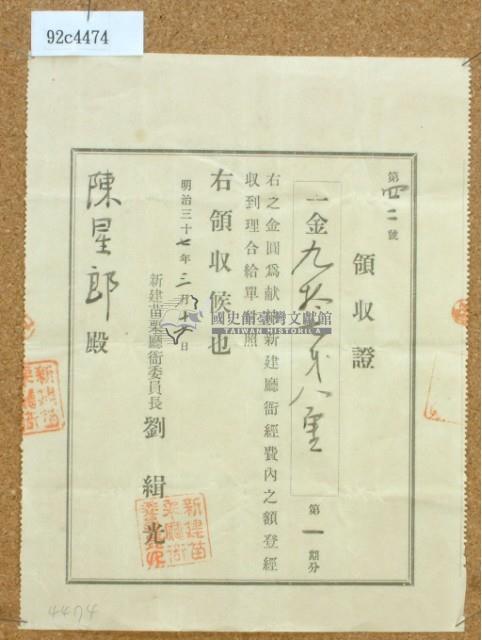 92c4474
領收證
第四二號
一金九拾
第一期分
右之金圓爲献納新建廳衙經費內之額登經
收到理合給單付照
右領收候也
明治三十七年三月 日
新建苗栗廳衙委員長 劉緝光
陳星郎殿
國史館臺灣文獻館
TAIWAN HISTORICA
新建苗
栗廳衙
4474